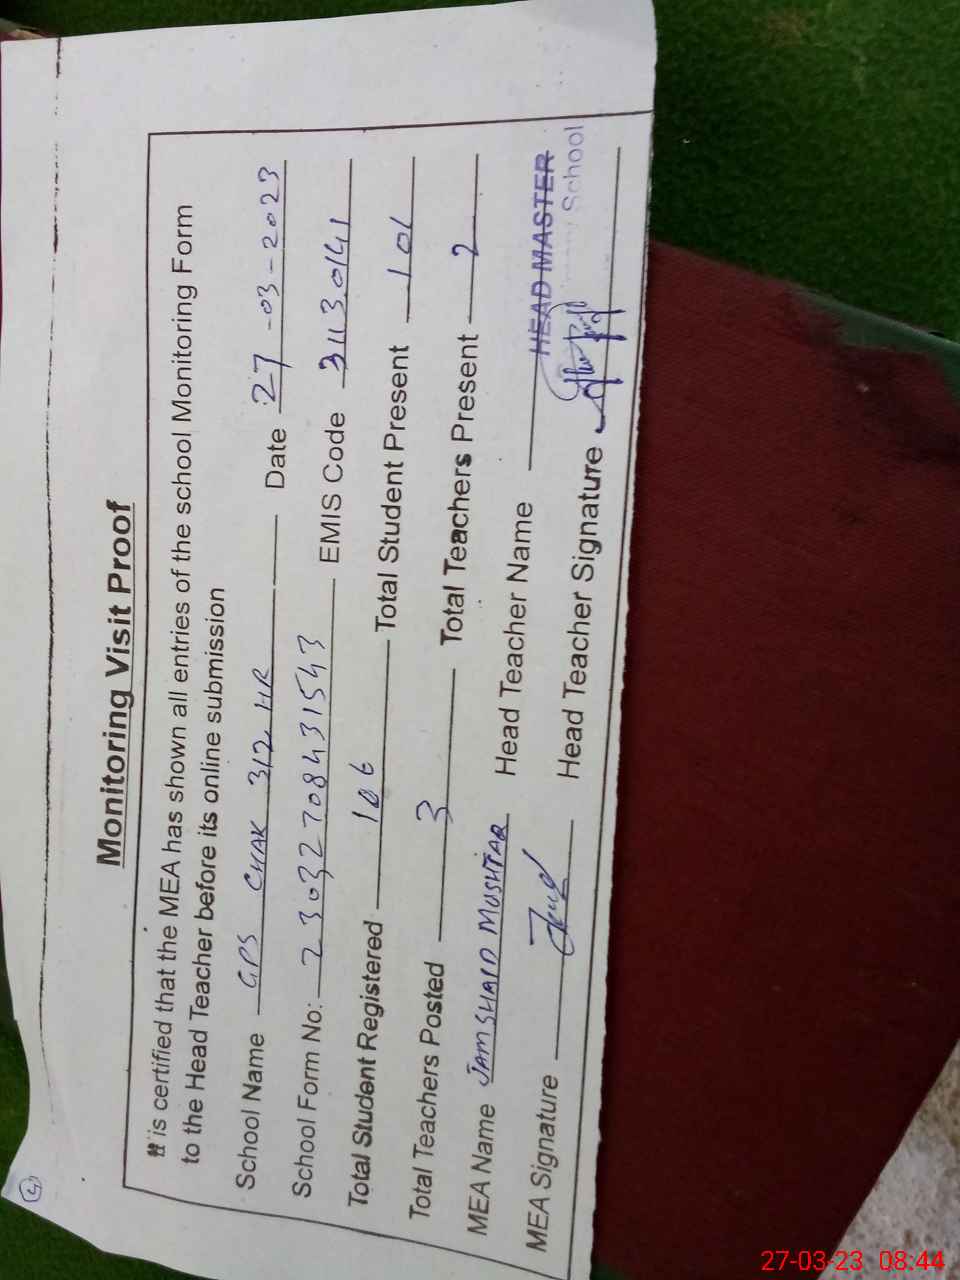 4
Monitoring Visit Proof
It is certified that the MEA has shown all entries of the school Monitoring Form
to the Head Teacher before its online submission
School Name GPS CHAK 312 HR Date 27-03-2023
School Form No: 2303270843 1543 EMIS Code 31130141
Total Student Registered 106 Total Student Present 101
Total Teachers Posted 3 Total Teachers Present 2
MEA Name JAMSHAID MUSHTAQ Head Teacher Name HEAD MASTER
School
MEA Signature Head Teacher Signature
27-03-23 08:44